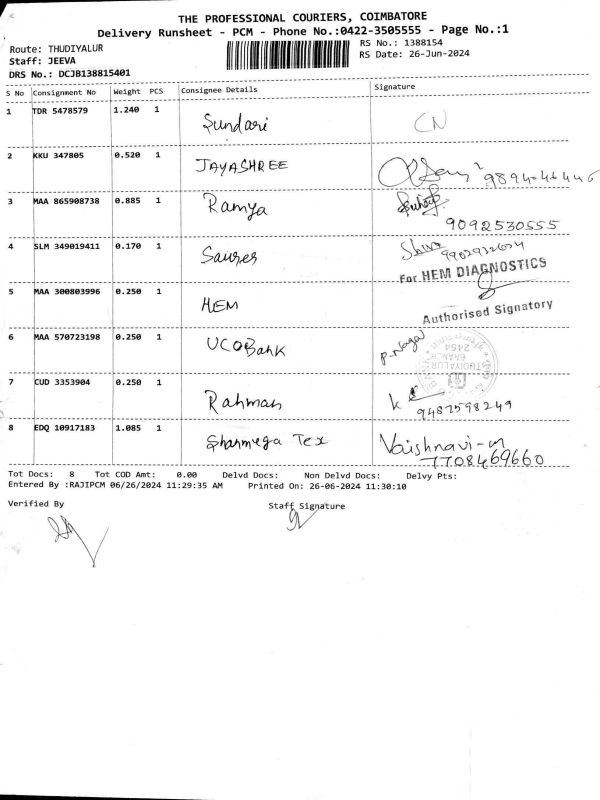 THE PROFESSIONAL COURIERS, COIMBATORE
Delivery Runsheet - PCM - Phone No.:0422-3505555 - Page No.:1
Route: THUDIYALUR
Staff: JEEVA
DRS No.: DCJB138815401
RS No.: 1388154
RS Date: 26-Jun-2024
S No Consignment No Weight PCS Consignee Details Signature
1 TDR 5478579 1.240 1 Sundari CN
2 KKU 347805 0.520 1 JAYASHREE
3 MAA 865908738 0.885 1 Ramya
9092530555
4 SLM 349019411 0.170 1 Shiva
For HEM DIAGNOSTICS
5 MAA 300803996 0.250 1 HEM
Authorised Signatory
6 MAA 570723198 0.250 1 UCOBank P. Naga
7 CUD 3353904 0.250 1 Rahman K
9487598249
8 EDQ 10917183 1.085 1 Sharmega Tex Vaishnavi-m
7708469660
Tot Docs: 8 Tot COD Amt: 0.00 Delvd Docs: Non Delvd Docs: Delvy Pts:
Entered By :RAJIPCM 06/26/2024 11:29:35 AM Printed On: 26-06-2024 11:30:10
Verified By Staff Signature